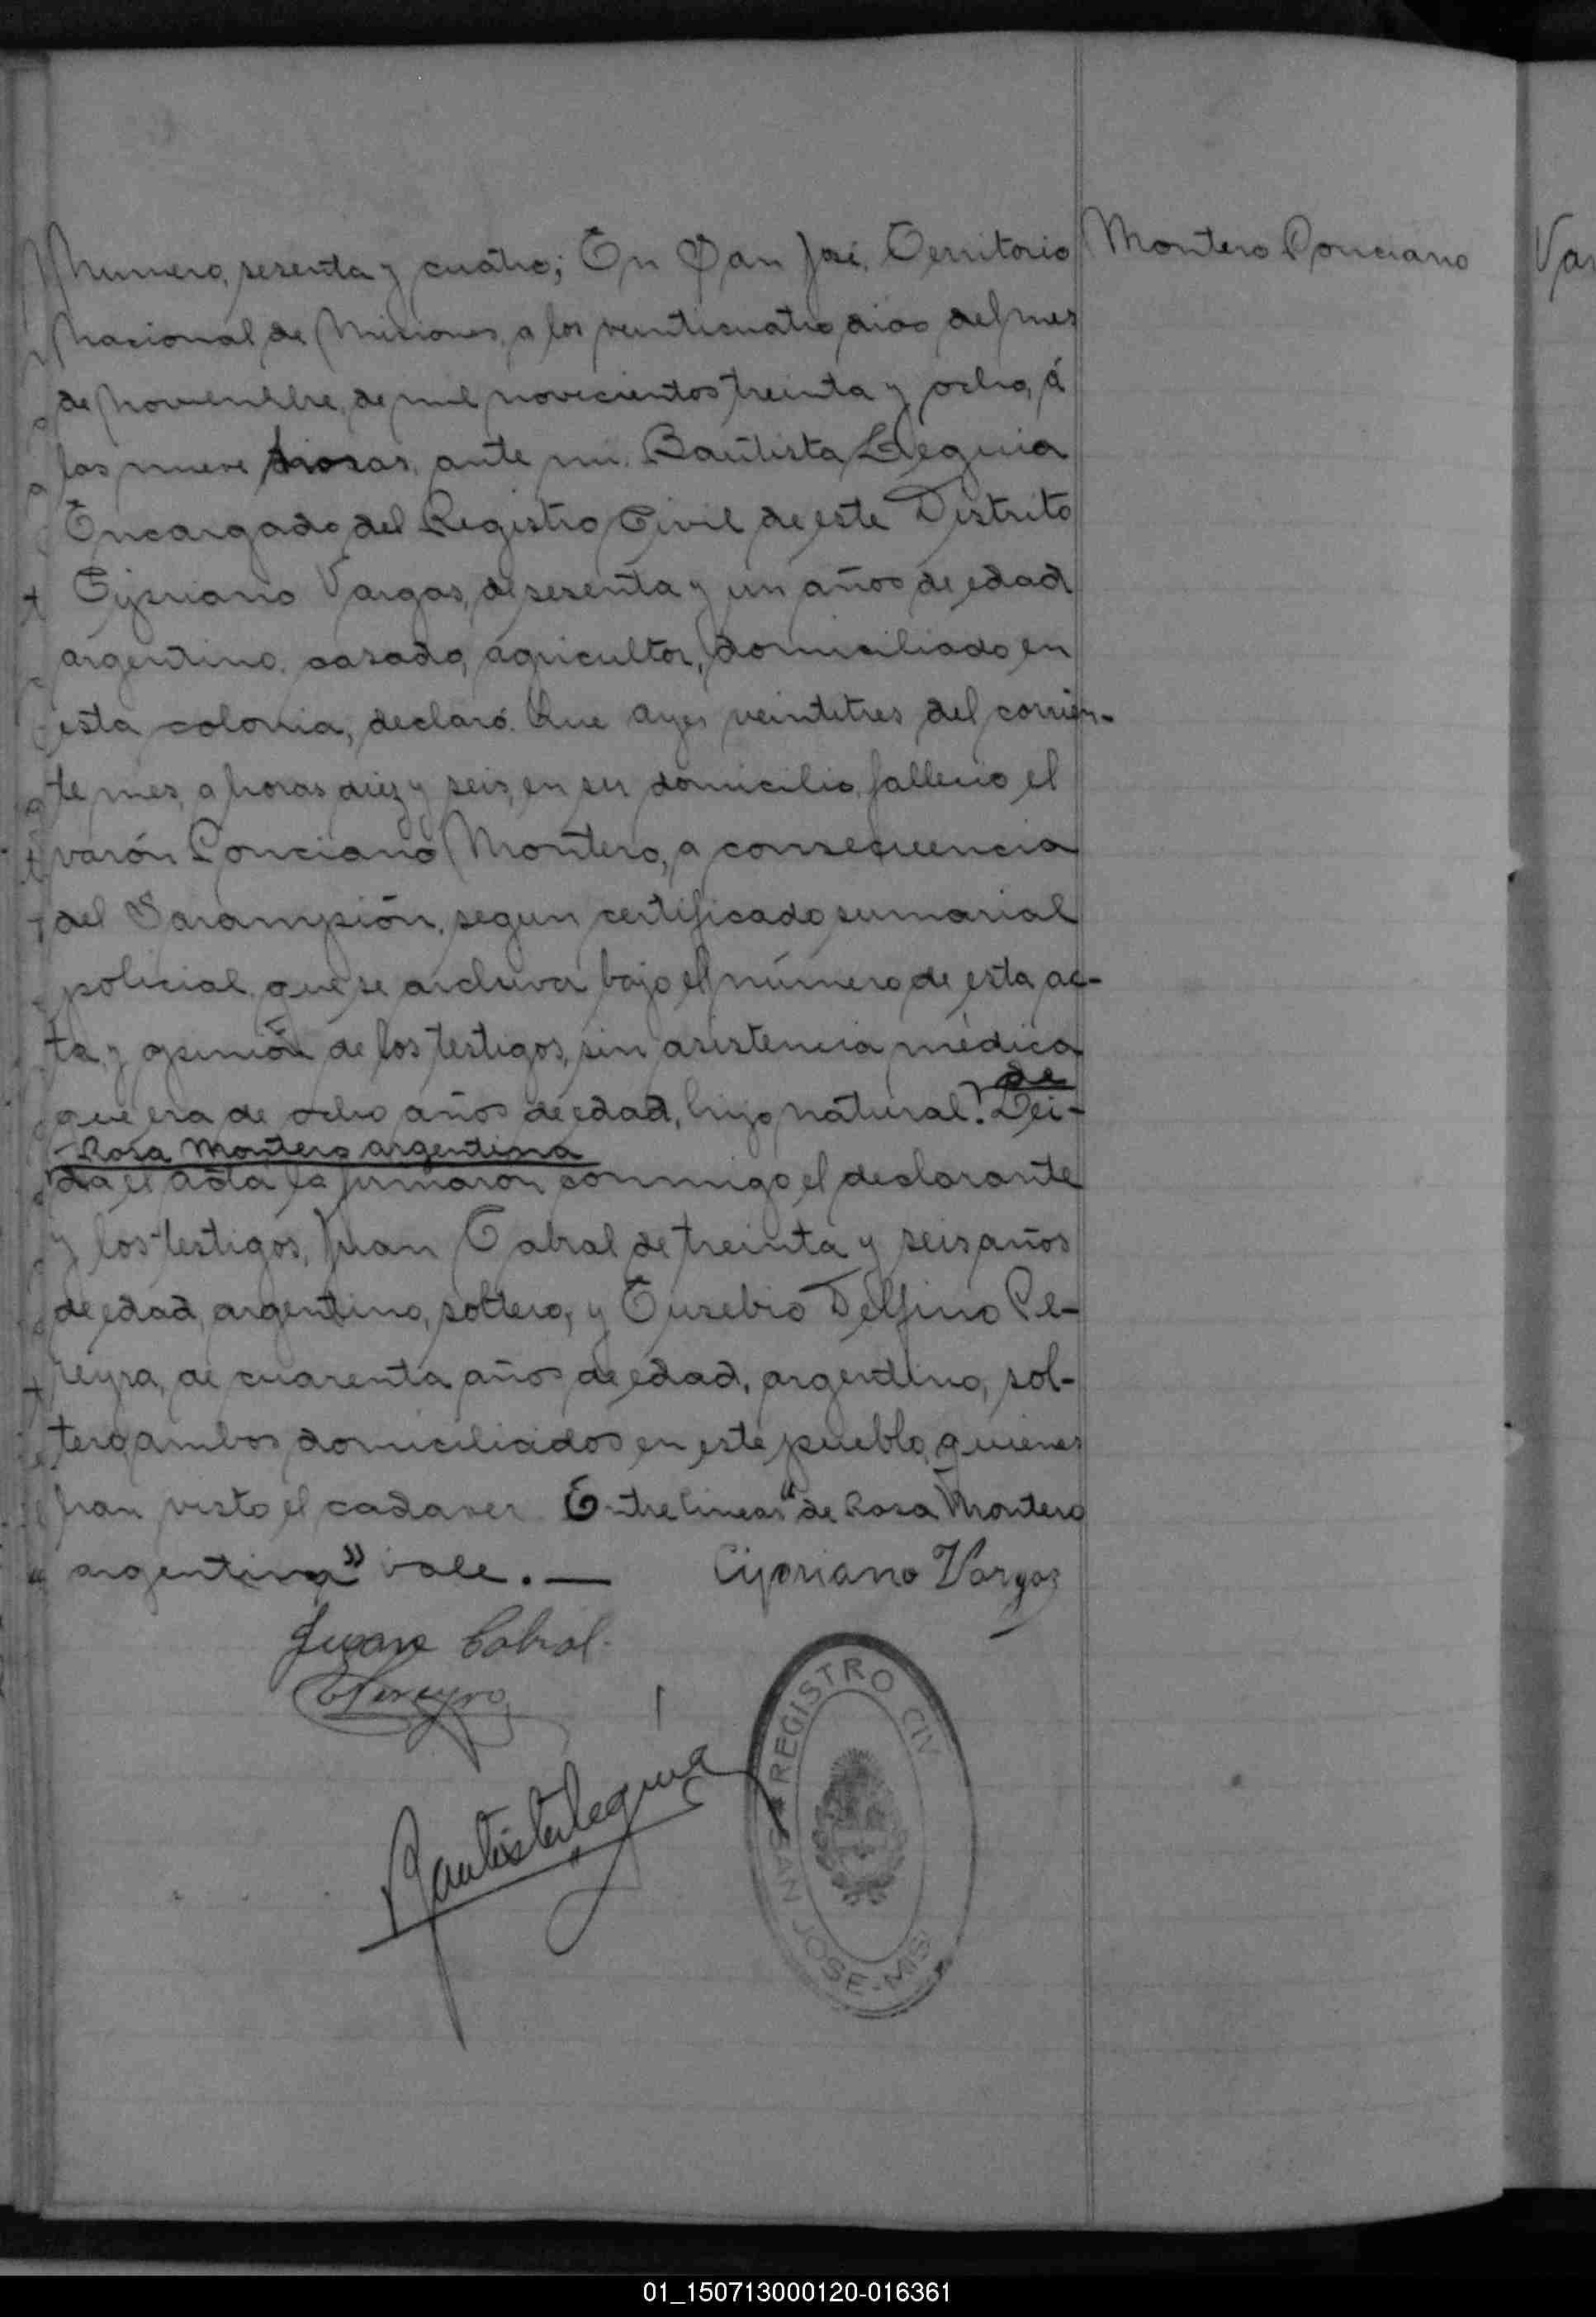 Numero, sesenta y cuatro; En San José, Territorio
Nacional de Misiones, a los veinticuatro dias del mes
de Noviembre, de mil novecientos treinta y ocho, á
las nueve horas, ante mi. Bautista Leguia
Encargado del Registro Civil de este Distrito
Cipriano Vargas, de sesenta y un años de edad
argentino, casado, agricultor, domiciliado en
esta colonia, declaró. Que ayer veintitres del corrien-
te mes, a horas diez y seis, en su domicilio, fallecio el
varón Ponciano Montero, a consecuencia
del Sarampión, segun certificado sumarial
policial, que se archiva bajo el número de esta ac-
ta, y opinión de los testigos, sin asistencia médica
que era de ocho años de edad, hijo natural. de Lei-
Rosa Montero argentina
da el acta la firmaron conmigo el declarante
y los testigos, Juan Cabral de treinta y seis años
de edad, argentino, soltero, y Eusebio Delfino Pe-
reyra, de cuarenta años de edad, argentino, sol-
tero, ambos domiciliados en este pueblo, quienes
han visto el cadaver. Entre lineas "de Rosa Montero
argentina" vale.—
Cipriano Vargas
Juan Cabral.
EPereyra
Bautista Leguia
REGISTRO CIV
SAN JOSE-MIS
Montero Ponciano
Var
01_150713000120-016361